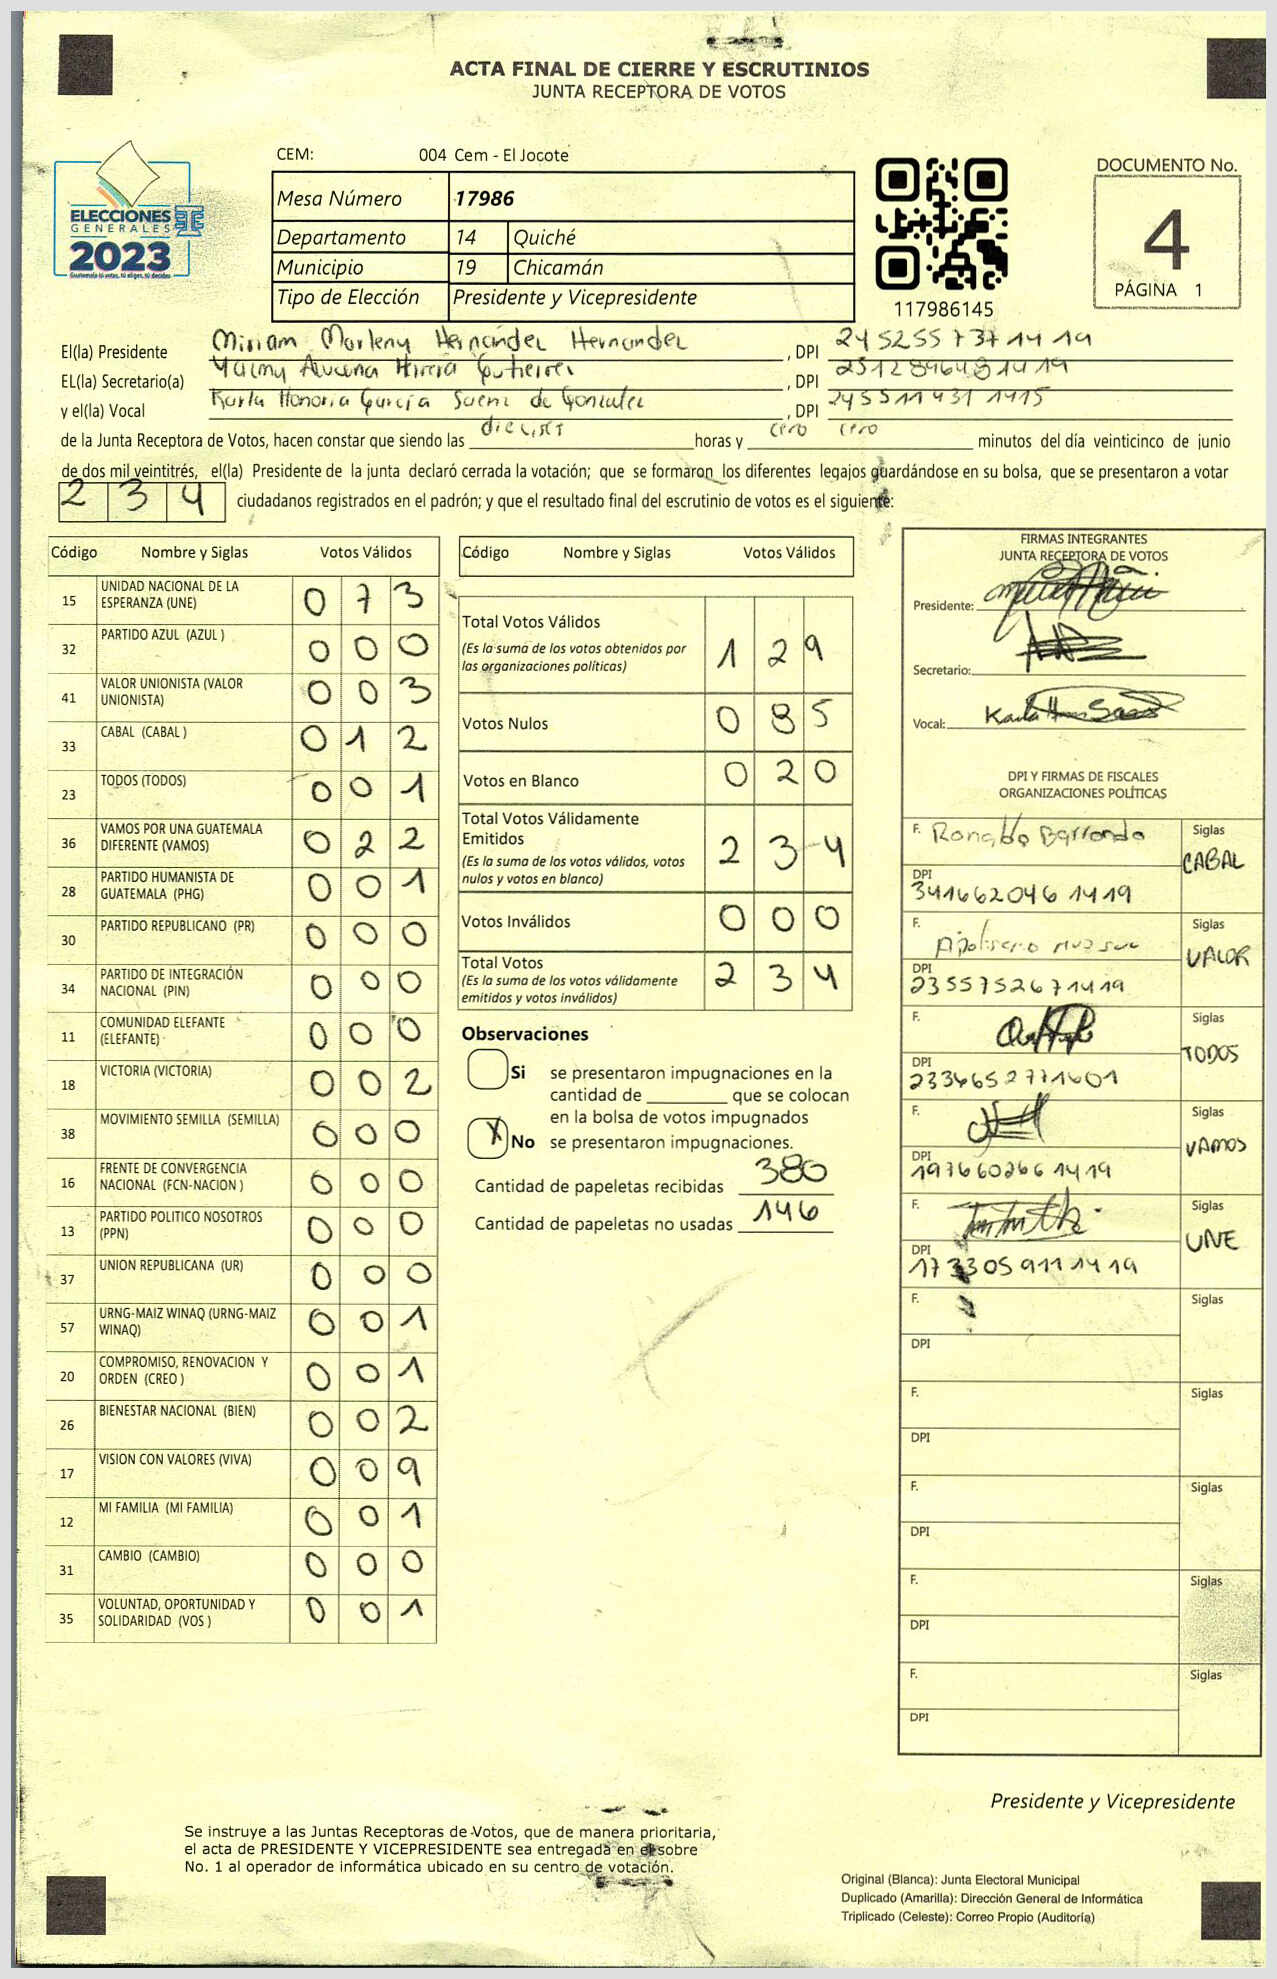 ACTA FINAL DE CIERRE Y ESCRUTINIOS
JUNTA RECEPTORA DE VOTOS
ELECCIONES
GENERALES
2023
CEM: 004 Cem - El Jocote
Mesa Número 17986
Departamento 14 Quiché
Municipio 19 Chicamán
Tipo de Elección Presidente y Vicepresidente
117986145
DOCUMENTO No.
4
PÁGINA 1
El(la) Presidente Miriam Marleny Hernández Hernandez , DPI 2452557371419
EL(la) Secretario(a) Gutierrez , DPI 2512896481419
y el(la) Vocal Karla Honoria García Saenz de Gonzalez , DPI 2455114311415
de la Junta Receptora de Votos, hacen constar que siendo las horas y cero cero minutos del día veinticinco de junio
de dos mil veintitrés, el(la) Presidente de la junta declaró cerrada la votación; que se formaron los diferentes legajos guardándose en su bolsa, que se presentaron a votar
234 ciudadanos registrados en el padrón; y que el resultado final del escrutinio de votos es el siguiente:
Código Nombre y Siglas Votos Válidos
15 UNIDAD NACIONAL DE LA ESPERANZA (UNE) 073
32 PARTIDO AZUL (AZUL ) 000
41 VALOR UNIONISTA (VALOR UNIONISTA) 003
33 CABAL (CABAL ) 012
23 TODOS (TODOS) 001
36 VAMOS POR UNA GUATEMALA DIFERENTE (VAMOS) 022
28 PARTIDO HUMANISTA DE GUATEMALA (PHG) 001
30 PARTIDO REPUBLICANO (PR) 000
34 PARTIDO DE INTEGRACIÓN NACIONAL (PIN) 000
11 COMUNIDAD ELEFANTE (ELEFANTE) 000
18 VICTORIA (VICTORIA) 002
38 MOVIMIENTO SEMILLA (SEMILLA) 000
16 FRENTE DE CONVERGENCIA NACIONAL (FCN-NACION ) 000
13 PARTIDO POLITICO NOSOTROS (PPN) 000
37 UNION REPUBLICANA (UR) 000
57 URNG-MAIZ WINAQ (URNG-MAIZ WINAQ) 001
20 COMPROMISO, RENOVACION Y ORDEN (CREO ) 001
26 BIENESTAR NACIONAL (BIEN) 002
17 VISION CON VALORES (VIVA) 009
12 MI FAMILIA (MI FAMILIA) 001
31 CAMBIO (CAMBIO) 000
35 VOLUNTAD, OPORTUNIDAD Y SOLIDARIDAD (VOS ) 001
Código Nombre y Siglas Votos Válidos
Total Votos Válidos 129
(Es la suma de los votos obtenidos por
las organizaciones políticas)
Votos Nulos 085
Votos en Blanco 020
Total Votos Válidamente
Emitidos 234
(Es la suma de los votos válidos, votos
nulos y votos en blanco)
Votos Inválidos 000
Total Votos 234
(Es la suma de los votos válidamente
emitidos y votos inválidos)
Observaciones
Si se presentaron impugnaciones en la
cantidad de ________ que se colocan
en la bolsa de votos impugnados
X No se presentaron impugnaciones.
Cantidad de papeletas recibidas 380
Cantidad de papeletas no usadas 146
FIRMAS INTEGRANTES
JUNTA RECEPTORA DE VOTOS
Presidente:
Secretario:
Vocal:
DPI Y FIRMAS DE FISCALES
ORGANIZACIONES POLÍTICAS
F. Ronaldo Barrondo Siglas CABAL
DPI 3416620461419
F. Siglas VALOR
DPI 2355752671419
F. Siglas TODOS
DPI 2334652771601
F. Siglas VAMOS
DPI 1976602661419
F. Siglas UNE
DPI 1733059111419
F. Siglas
DPI
F. Siglas
DPI
F. Siglas
DPI
F. Siglas
DPI
F. Siglas
DPI
Presidente y Vicepresidente
Se instruye a las Juntas Receptoras de Votos, que de manera prioritaria,
el acta de PRESIDENTE Y VICEPRESIDENTE sea entregada en el sobre
No. 1 al operador de informática ubicado en su centro de votación.
Original (Blanca): Junta Electoral Municipal
Duplicado (Amarilla): Dirección General de Informática
Triplicado (Celeste): Correo Propio (Auditoría)